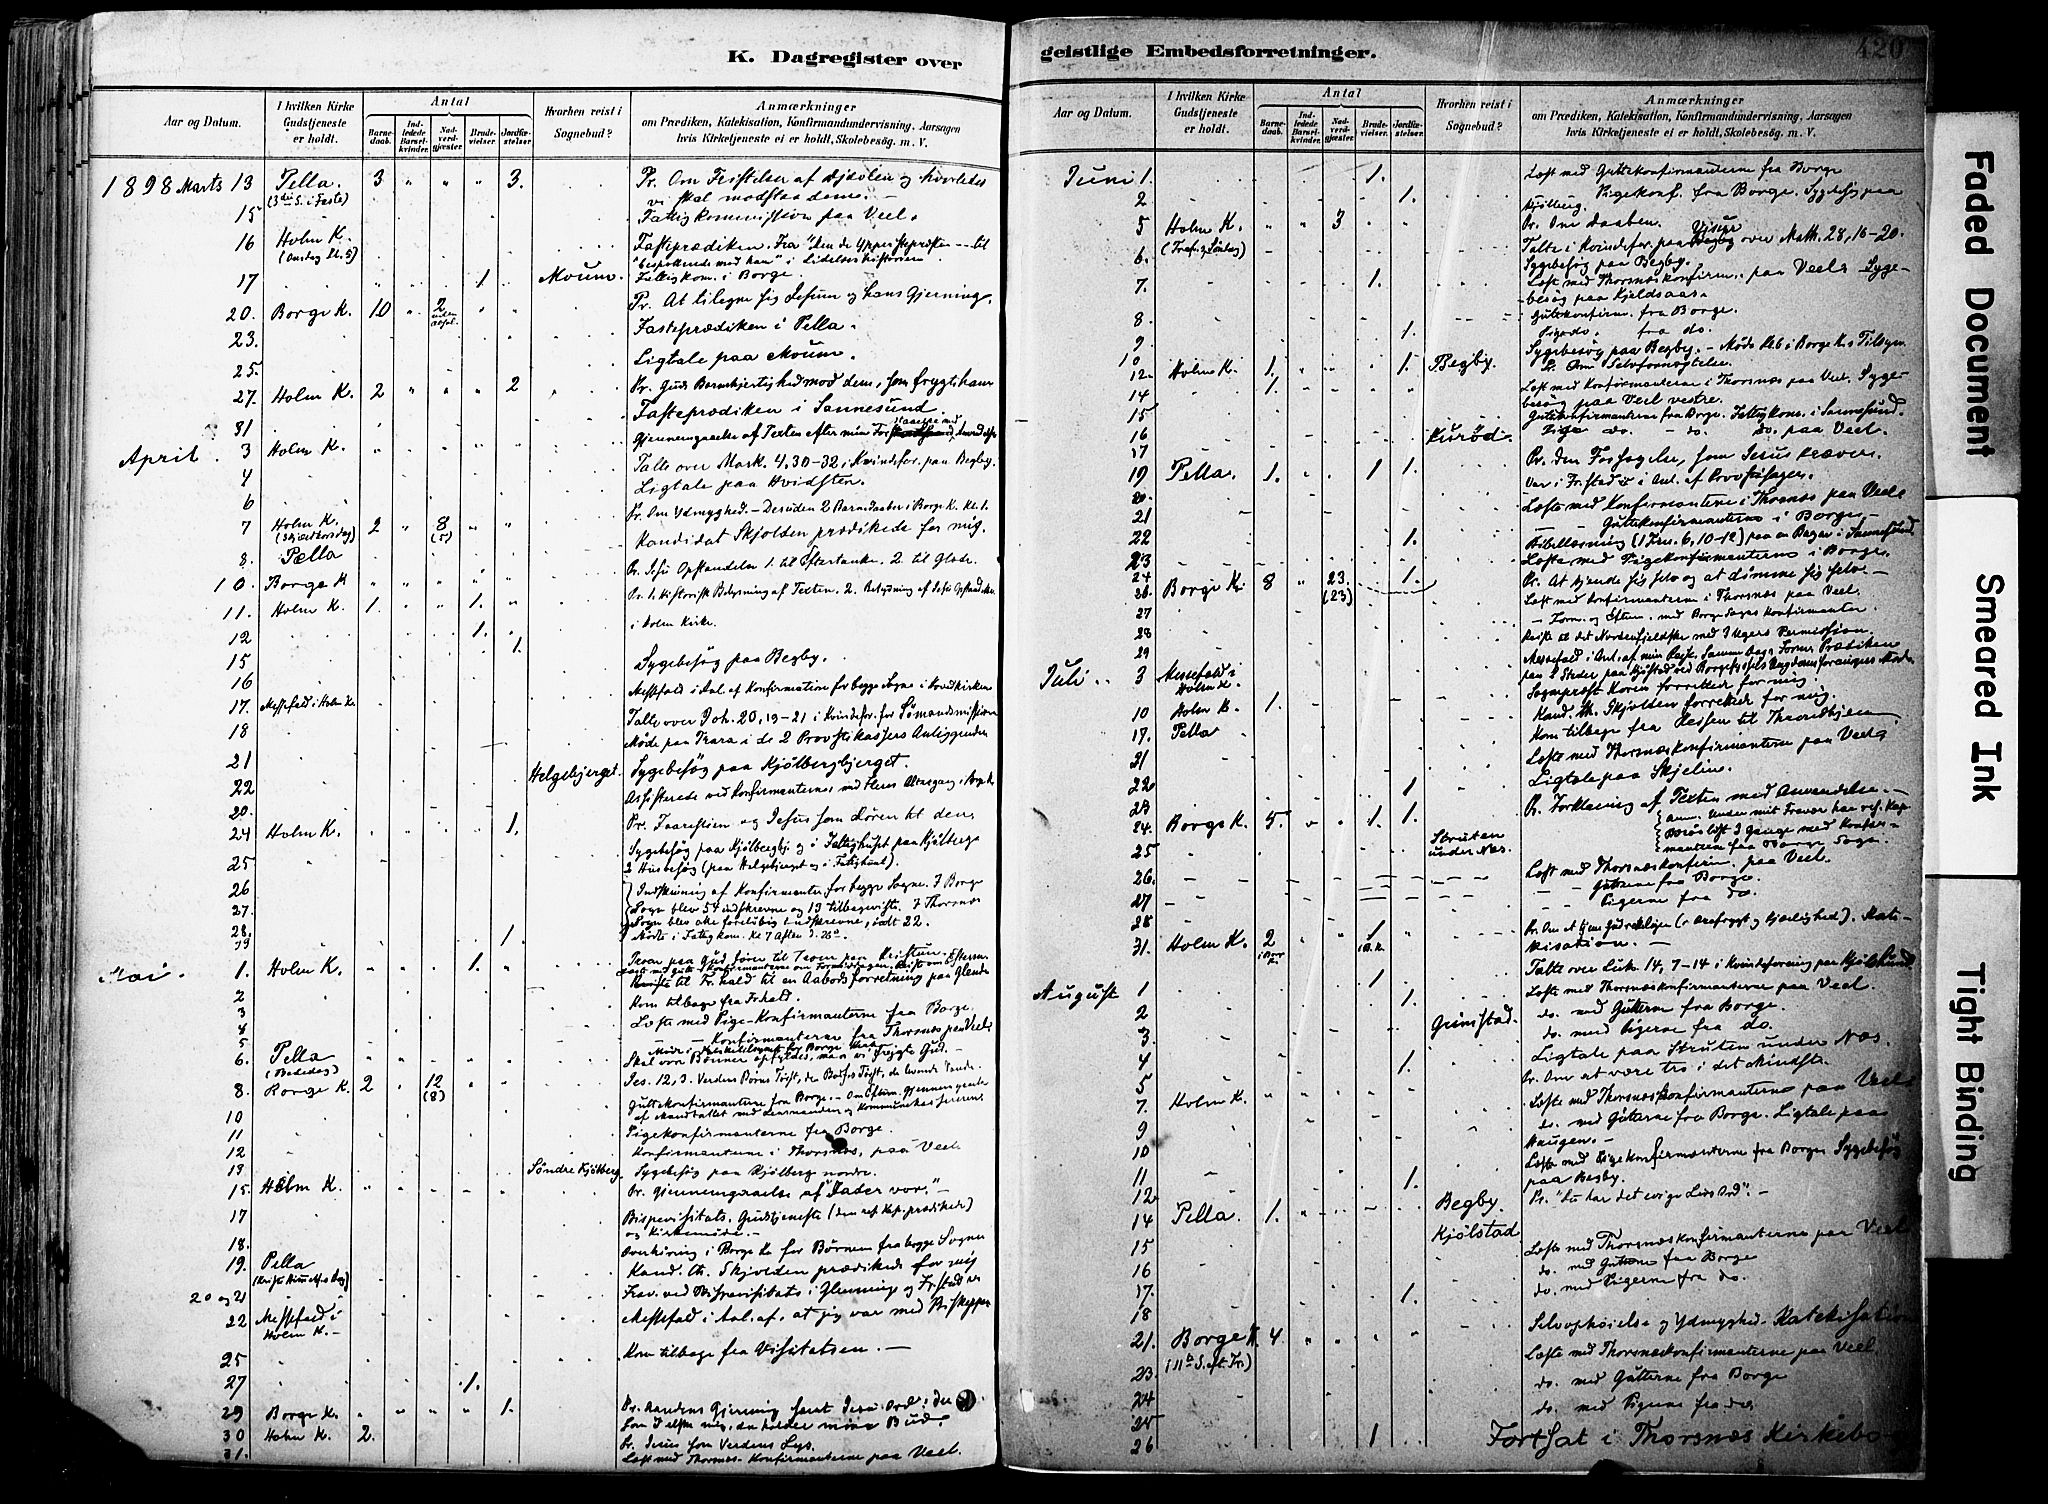 K. Dagregister over
Aar og Datum.
I hvilken Kirke Gudstjeneste er holdt.
Antal
Barne-daab.
Ind-ledede Barsel-kvinder.
Nad-verd-gjæster.
Brude-vielser.
Jordfæ-stelser.
Hvorhen reist i Sognebud?
Anmærkninger
om Prædiken, Katekisation, Konfirmandundervisning, Aarsagen
hvis Kirketjeneste ei er holdt, Skolebesøg. m. V.
1898 Marts 13 Pella. 3 " " " 3. Pr. Om Fristelser af Djævelen og hvorledes
(3die S. i Faste) vi skal modstaa dem. -
15 Fattigkommission paa Veel.
16 Holm K. Fasteprædiken. Fra "Den de Ypperstepræster - - til
(Onsdag Kl. 5) "bespottende mod han" i Lidelseshistorien
17 1 Moum. Fattigkom. i Borge.
20. Borge K. 10 " 2 " " Pr. At tilegne sig Jesum og hans Gjerning.
23. Fasteprædiken i Pella.
25. Ligtale paa Moum.
27. Holm K. 2 " " " 2 Pr. Guds Barmhjertighed mod dem, som frygte ham
31 Fasteprædiken i Sannesund.
April. 3 Holm K. Gjennemgaaelse af Texten efter min
4 Talte over Mark. 4, 30-32 i Kvindefor. paa Begby.
6 Ligtale paa Hvidsten.
7 Holm K. 2 " 8 " " Pr. Om Ydmyghed. - Desuden 2 Barnedaaber i Borge K. Kl. 1.
(Skjærtorsdag) (5)
8. Pella Kandidat Skjolden prædikede for mig.
10. Borge K Pr. Jesu Opstandelse 1. til Eftertanke. 2. til Glæde.
11. Holm K. 1. " " 1. " Pr. 1. historisk Belysning af Texten. 2. Betydning af Jesu Opstandelse.
12 1. i Holm Kirke.
15 1.
16 Sygebesøg paa Begby.
17. Messefald i Holm K. Messefald i Anl. af Konfirmation for begge Sogne i Hovedkirken
18 Talte over Joh. 20, 19-21 i Kvindefor. for Sømandsmission
21 Møde paa Trara i de 2 Provstikassers Anliggender
22 Helgebjerget. Sygebesøg paa Kjølbergbjerget.
20. Assisterede ved Konfirmanternes med deres Altergang i
24 Holm K. 1. Pr. Faarestien og Jesus som Døren til den
25 Sygebesøg paa Kjølbergbj. og i Fattighuset paa Kjølberg
2 Husbesøg (paa Helgebjerget og i Fattighuset).
26 Indskrivning af Konfirmanter for begge Sogne. I Borge
27. Sogn blev 54 indskrevne og 13 tilbageviste. I Thorsnæs
28. Sogn blev alle foreløbig indskrevne, ialt 22.
29 1. Møde i Fattigkom. Kl 7 Aften d. 26de.
Mai. 1. Holm K. " " " 1. " Troen paa Gud fører til Troen paa Kristum.
2 Reiste til Fr.hald til en Aabodsforretning paa
3 Kom tilbage fra Fr.hald.
4 Læste med Pige-Konfirmanterne fra Borge.
5 - - Konfirmanterne fra Thorsnæs paa Veel.
6. Pella Skal vore Bønner opfyldes, maa vi frygte Gud. -
(Bededag)
8. Borge K. 2 " 12 " " Jes. 12, 3. Verdens Børns Tørst, den Bodfærd. Tørst, de levende Vande.
(8)
10 Guttekonfirmanterne fra Borge. - Om Efterm. Gjennemgaaelse
af Mandtallet med Lensmanden og Kommunekassereren.
11 Pigekonfirmanterne fra Borge.
12 Konfirmanterne i Thorsnæs, paa Veel
13 Søndre Kjølberg. Sygebesøg paa Kjølberg nordre.
15. Holm K. Pr. Gjennemgaaelse af "Fader vor." -
17 Bispevisitats. Gudstjeneste (den res. Kap. prædiker)
og Kirkemøde. -
18. Overhøring i Borge K. for Børnene fra begge Sogne
19. Pella Kand. th. Skjolden prædikede for mig
20 og 21 Frav. ved Bispevisitats i Glemminge og Fr.stad
22 Messefald i Messefald i Anl. af, at jeg var med Biskoppen
Holm K. -
25 Kom tilbage fra Visitatsen. -
27 1.
29 Borge K. " " " " 1. Pr. Aandens Gjerning samt Jesu Ord: Den
30 Holm K. 2. som elsker mig, den holder mine Bud.
31. Pr. Jesus som Verdens Lys.
Læst med Thorsnæs-Konfirmanterne paa Veel.
geistlige Embedsforretninger.
420
Aar og Datum.
I hvilken Kirke Gudstjeneste er holdt.
Antal
Barne-daab.
Ind-ledede Barsel-kvinder.
Nad-verd-gjæster.
Brude-vielser.
Jordfæ-stelser.
Hvorhen reist i Sognebud?
Anmærkninger
om Prædiken, Katekisation, Konfirmandundervisning, Aarsagen
hvis Kirketjeneste ei er holdt, Skolebesøg. m. V.
Juni 1. 1. Læst med Guttekonfirmanterne fra Borge
2 1. - Pigekonf. fra Borge. Sygebesøg paa
Kjølberg.
5 Holm K. " " 3 Pr. Om Daaben.
(Tref. Søndag) Talte i Kvindefor. paa Visige over Math. 28, 16-20.
6. Sygebesøg paa Begby.
7. 1. Læst med Thorsnæskonfirm. paa Veel. Syge-
besøg paa Kjeldsaas.
8. Guttekonfirm. fra Borge.
9 1. Pige do. fra do.
10 Sygebesøg paa Begby. - Møde Kl. 6 i Borge K.s Tilsyn.
12. Holm K. 1. " " " 1. Begby. Pr. Om Selvfornegtelse.
14 1. Læst med Konfirmanterne i Thorsnæs paa Veel. Syge-
besøg paa Veel vestre.
15 Guttekonfirmanterne fra Borge. Fattigkom. i Sannesund.
16 Lurød. Pige do. - do. do. paa Veel.
17
19 Pella. 1. " " 1 1. Pr. Den Forsagelse, som Jesus kræver.
20. Var i Fr.stad i Anl. af Provstisager.
21 Læste med Konfirmanterne i Thorsnæs paa Veel.
22 1. - - Guttekonfirmanterne i Borge. -
23 Bibellæsning (1 Tim. 6, 10-12) paa en Bazar i Sannesund.
24 Læste med Pigekonfirmanterne i Borge.
26. Borge K. 8 " 23. " 1. Pr. At kjende sig selv og at dømme sig selv. -
(23)
27 Læst med Konfirmanterne i Thorsnæs paa Veel.
28 - Form. og Efterm. med Borge Sogns Konfirmanter.
29 Reiste til det Nordenfjeldske med 3 Ugers Permission.
Juli 3 Messefald i Messefald i Anl. af min Reise.
Holm K.
10 Holm K. 1. Sogneprest Koren forretter for mig.
17. Pella Kand. th. Skjolden forretter for mig.
21 Kom tilbage fra Reisen til Throndhjem
22 1 Læste med Thorsnæskonfirmanterne paa Veel.
23 Ligtale paa Skjelin.
24. Borge K. 5. " " 1. 1. Pr. Forklaring af Texten med Anvendelse. -
25 Struten under Næs. Anm. Under mit Fravær har res. Kap.
læst 3 Gange med Konfir-
manterne fra Borge Sogn.
26. Læst med Thorsnæskonfirm. paa Veel.
27 - - Gutterne fra Borge.
28 - - Pigerne fra do.
31. Holm K. 2 " " 1 " Pr. Om at tjene Gud rettelig (i ærefrygt og kjærlighed). Kate-
kisation. -
August 1 1 Talte over Luk. 14, 7-14 i Kvindeforening paa Kjølsund.
2 1. Læste med Thorsnæskonfirmanterne paa Veel.
3. Grimstad. do. med Gutterne fra Borge.
4 1. do. med Pigerne fra do.
5 Ligtale paa Struten under Næs.
7. Holm K. Pr. Om at være tro i det Mindste.
9 Læste med Thorsnæskonfirmanterne paa Veel.
10 do. med Gutterne fra Borge. Ligtale paa
Haugen. -
11 1. Læste med Pigekonfirmanterne fra Borge. Sygebesøg
12 Begby. paa Begby.
14 Pella. 1. Kjølstad Pr. "Du har det evige Livs Ord". -
15 Læste med Thorsnæskonfirmanterne paa Veel
16 do. med Gutterne fra Borge
17. 1. do. med Pigerne fra do.
18
21. Borge K. 4 Selvophøielse og Ydmyghed. Katekisation
(11te S. eft. Tr.)
23. Læste med Thorsnæskonfirmanterne paa Veel.
24 do. med Gutterne fra Borge
25 do. med Pigerne fra do.
26 1 Fortsat i Thorsnæs Kirkebog
Faded Document
Smeared Ink
Tight Binding